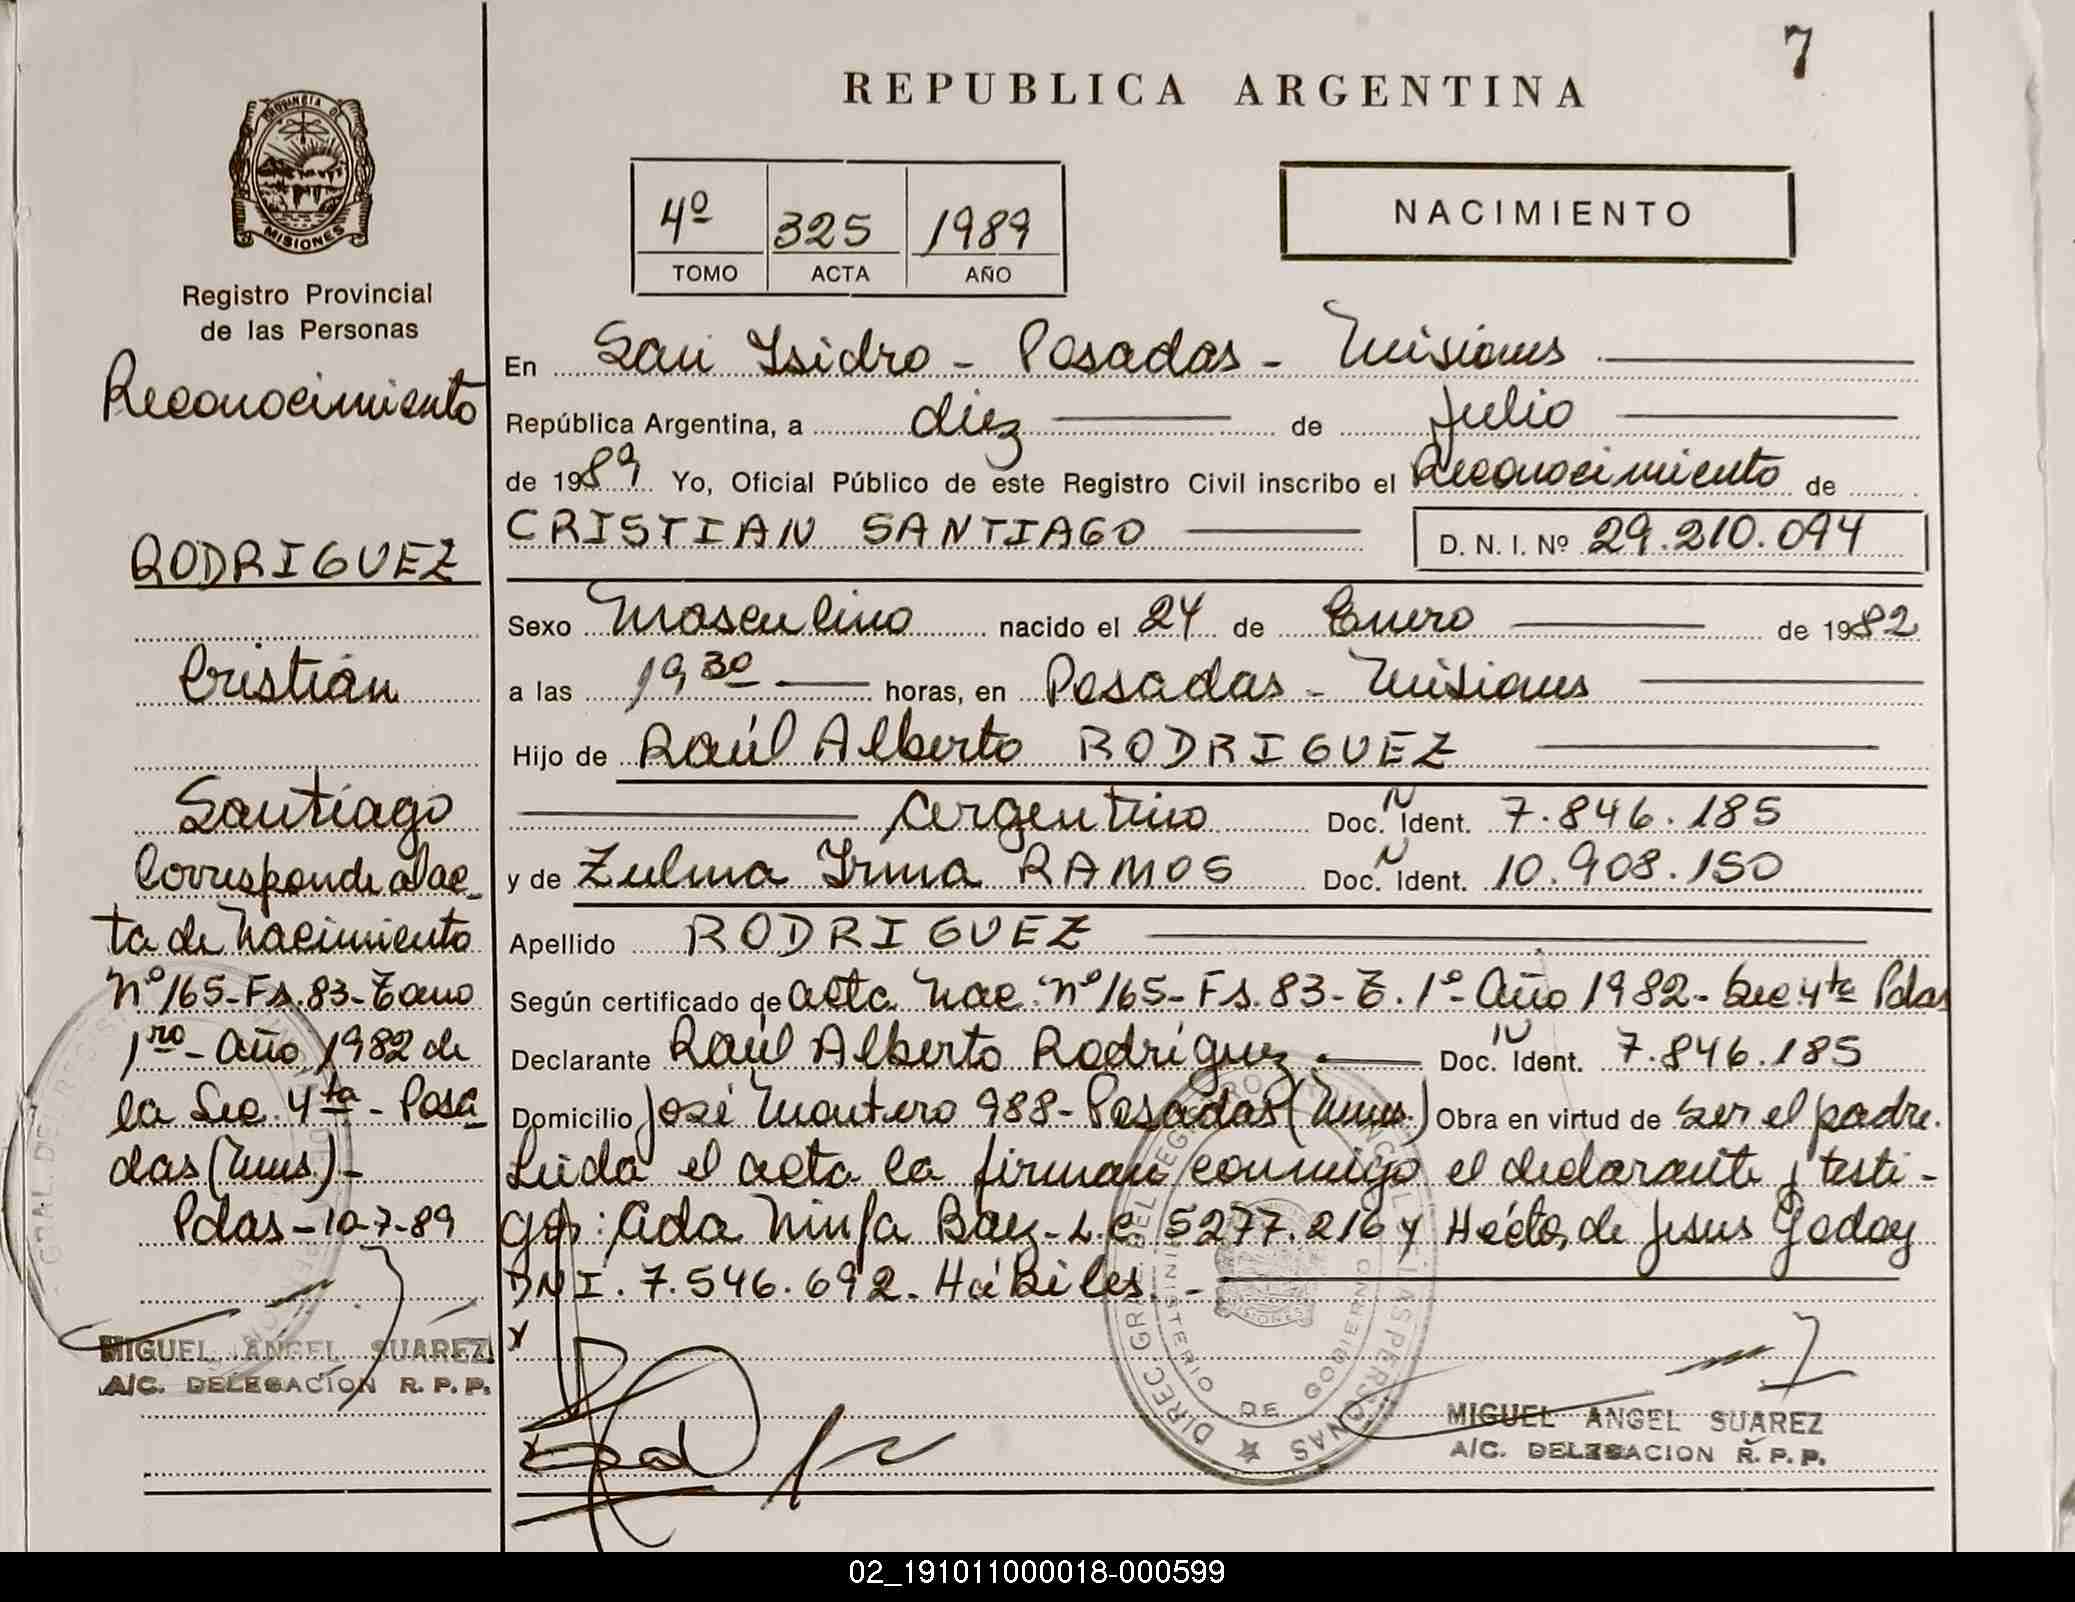 7
REPUBLICA ARGENTINA
PROVINCIA DE
MISIONES
Registro Provincial
de las Personas
4º 325 1989
TOMO ACTA AÑO
NACIMIENTO
Reconocimiento
RODRIGUEZ
Cristian
Santiago
Corresponde al ac-
ta de Nacimiento
Nº 165-Fs.83-Tomo
1ro-Año 1982 de
la Sec. 4ta-Posa
das (Mnes.)-
Pdas-10-7-89
MIGUEL ANGEL SUAREZ
A/C. DELEGACION R. P. P.
En San Isidro - Posadas - Misiones
República Argentina, a diez de Julio
de 1989 Yo, Oficial Público de este Registro Civil inscribo el Reconocimiento de
CRISTIAN SANTIAGO D. N. I. Nº 29.210.094
Sexo Masculino nacido el 24 de Enero de 1982
a las 19,30 horas, en Posadas - Misiones
Hijo de Raúl Alberto RODRIGUEZ
Argentino Doc. N Ident. 7.846.185
y de Zulma Irma RAMOS Doc. N Ident. 10.908.150
Apellido RODRIGUEZ
Según certificado de acta Nac. Nº 165-Fs.83-T.1º-Año 1982-Sec 4ta Pdas
Declarante Raúl Alberto Rodríguez Doc. N Ident. 7.846.185
Domicilio José Montero 988-Posadas (Mnes.) Obra en virtud de ser el padre.
Leída el acta la firman conmigo el declarante y testi-
gos: Ada Ninfa Baez-L.C. 5277.216 y Héctor de Jesus Godoy
DNI. 7.546.692. Hábiles.-
DIREC. GRAL. DEL REGISTRO PROVINCIAL DE LAS PERSONAS
MINISTERIO DE GOBIERNO
MIGUEL ANGEL SUAREZ
A/C. DELEGACION R. P. P.
02_191011000018-000599